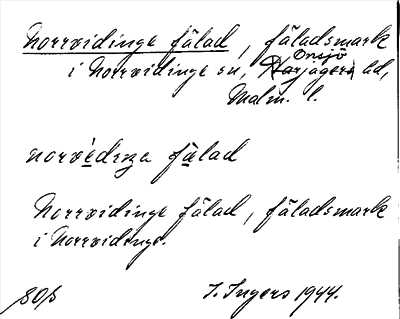 Norrvidinge fälad, fäladsmark
Onsjö
i Norrvidinge sn, Harjagers hd,
Malm. l.
norvèdiŋa fälad
Norrvidinge fälad, fäladsmark
i Norrvidinge.
I. Ingers 1944.